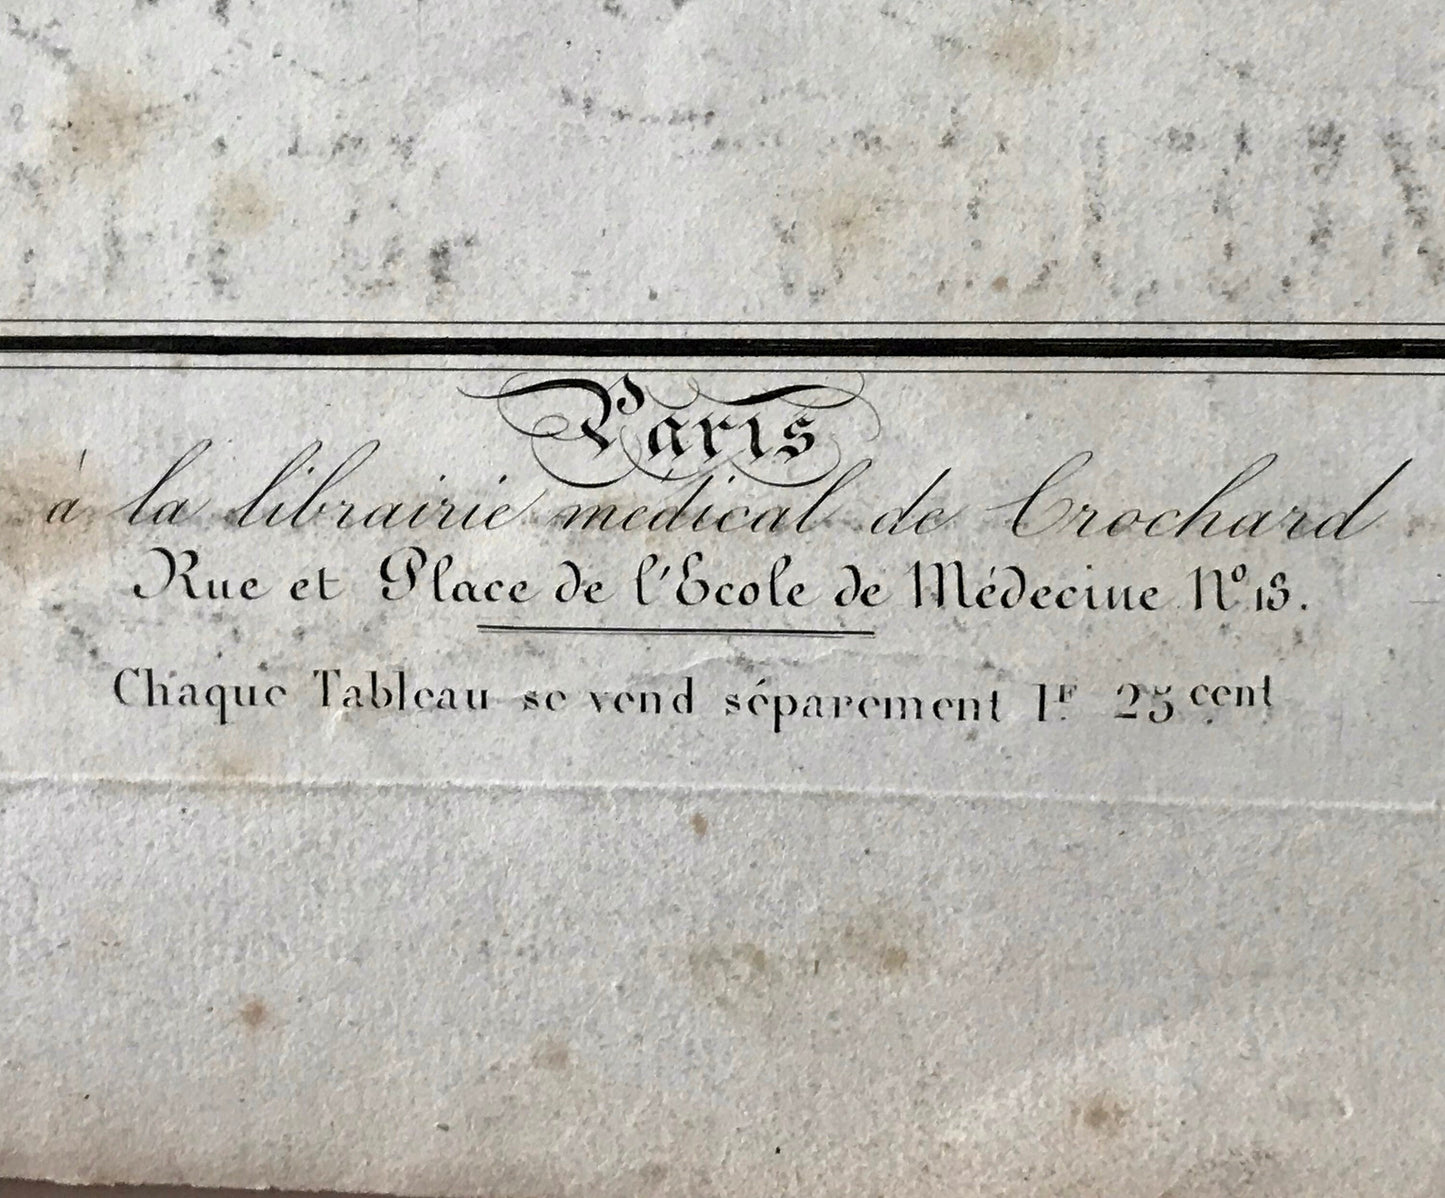 Paris
à la librairie médical de Crochard
Rue et Place de l'Ecole de Médecine Nº 13.
Chaque Tableau se vend séparement 1F. 25 cent